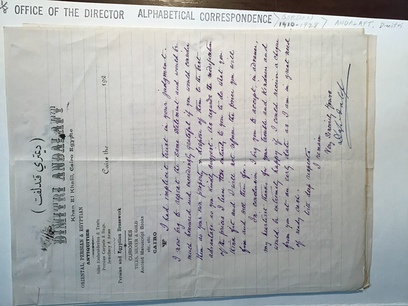 ( دمتري قندلفت )
DIMITRI ANDALAFT
Khan El Khalil, Cairo Egypte
ORIENTAL, PERSIAN & EGYPTIAN
ANTIQUITIES
Silks Embroideries & Tents
Persian Carpets & Rugs
Jewellery & Arms
Persian and Egyptian Brasswork
CURIOSITIES
TILES, SILVER & GOLD
Ancient Manuscript Books
etc. etc.
CAIRO
Cairo the 192
I had implicit trust in your judgment.
I now beg to repeat the same statement and would be
much honoured and exceedingly grateful if you would consider
them as your own property & dispose of them to the best
advantage as you kindly suggest. As regards the modification
of the prices I leave this entirely to you to do what you
think fit and I will not refuse the price you will
fix and sell them for.
In conclusion I beg you to accept, in advance,
my heartiest thanks for your trouble and kindness and
would be extremely happy if I could receive a cheque
from you at an early date as I am in great need
of ready cash.
With deep respects
I remain
Very Sincerely Yours
OFFICE OF THE DIRECTOR
ALPHABETICAL CORRESPONDENCE